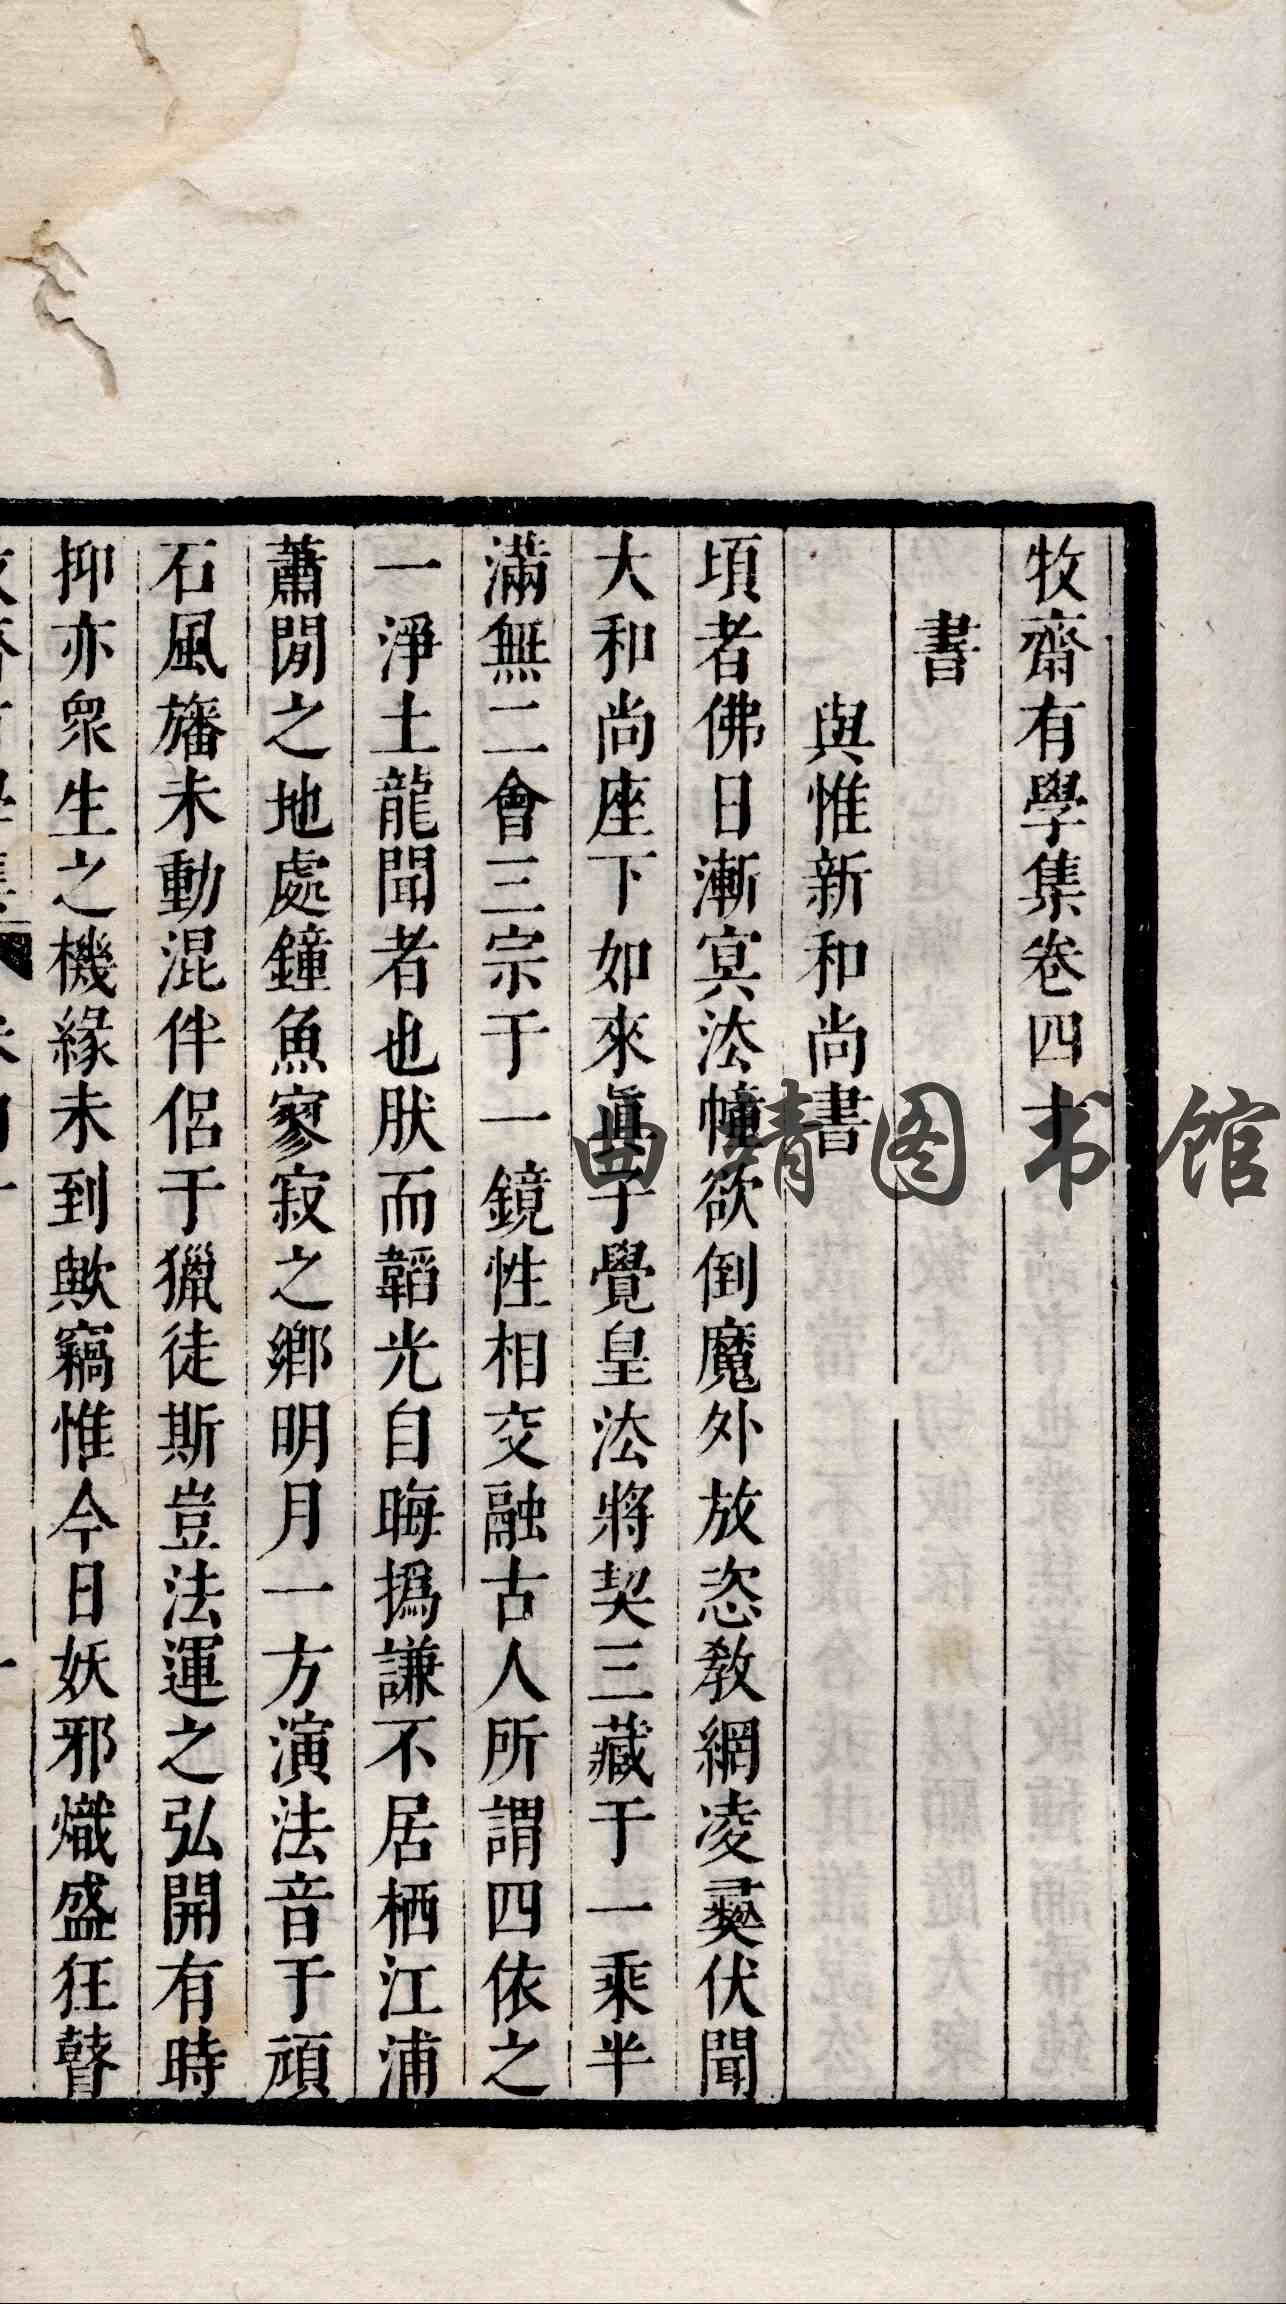 牧齋有學集卷四十
書
與惟新和尚書
頃者佛日漸冥法幢欲倒魔外放恣敎網凌彞伏聞
大和尚座下如來眞子覺皇法將契三藏于一乘半
滿無二會三宗于一鏡性相交融古人所謂四依之
一淨土龍聞者也肰而韜光自晦撝謙不居栖江浦
蕭閒之地處鐘魚寥寂之鄉明月一方演法音于頑
石風旛未動混伴侶于獵徒斯豈法運之弘開有時
抑亦衆生之機緣未到歟竊惟今日妖邪熾盛狂瞽
曲靖图书馆